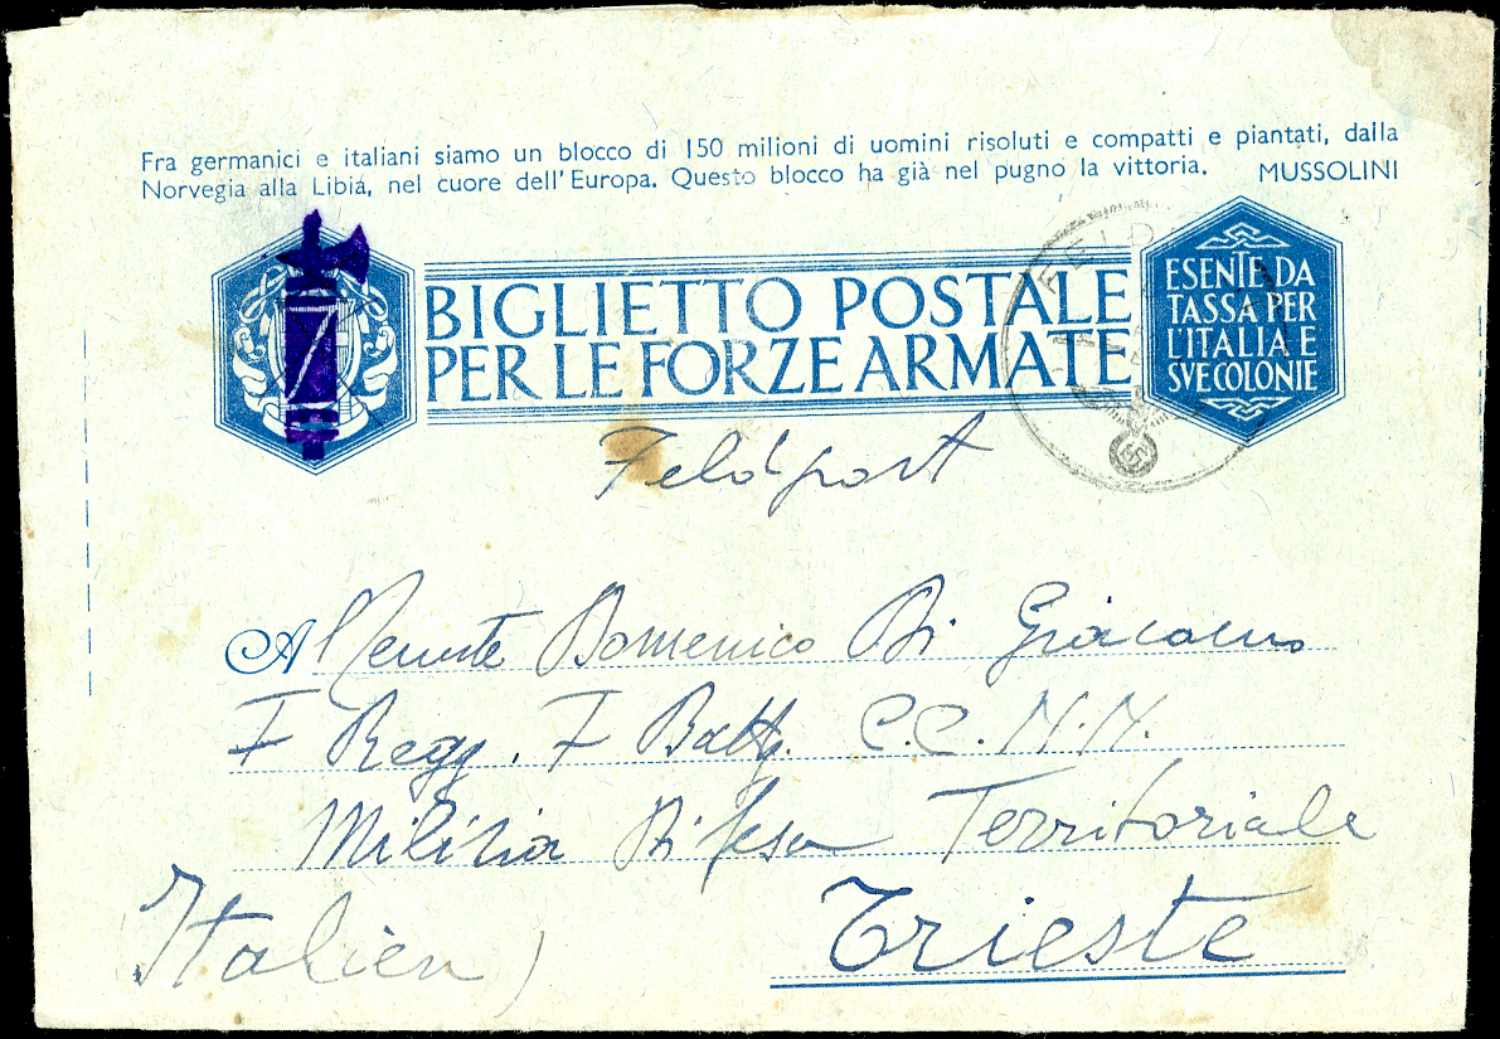 Fra germanici e italiani siamo un blocco di 150 milioni di uomini risoluti e compatti e piantati, dalla
Norvegia alla Libia, nel cuore dell'Europa. Questo blocco ha già nel pugno la vittoria. MUSSOLINI
BIGLIETTO POSTALE
PER LE FORZE ARMATE
ESENTE DA
TASSA PER
L'ITALIA E
SVE COLONIE
FELDP
Feldpost
Al Tenente Domenico Di Giacomo
I Regg. I Battg. C.C. N.N.
Milizia Difesa Territoriale
Trieste
Italien)